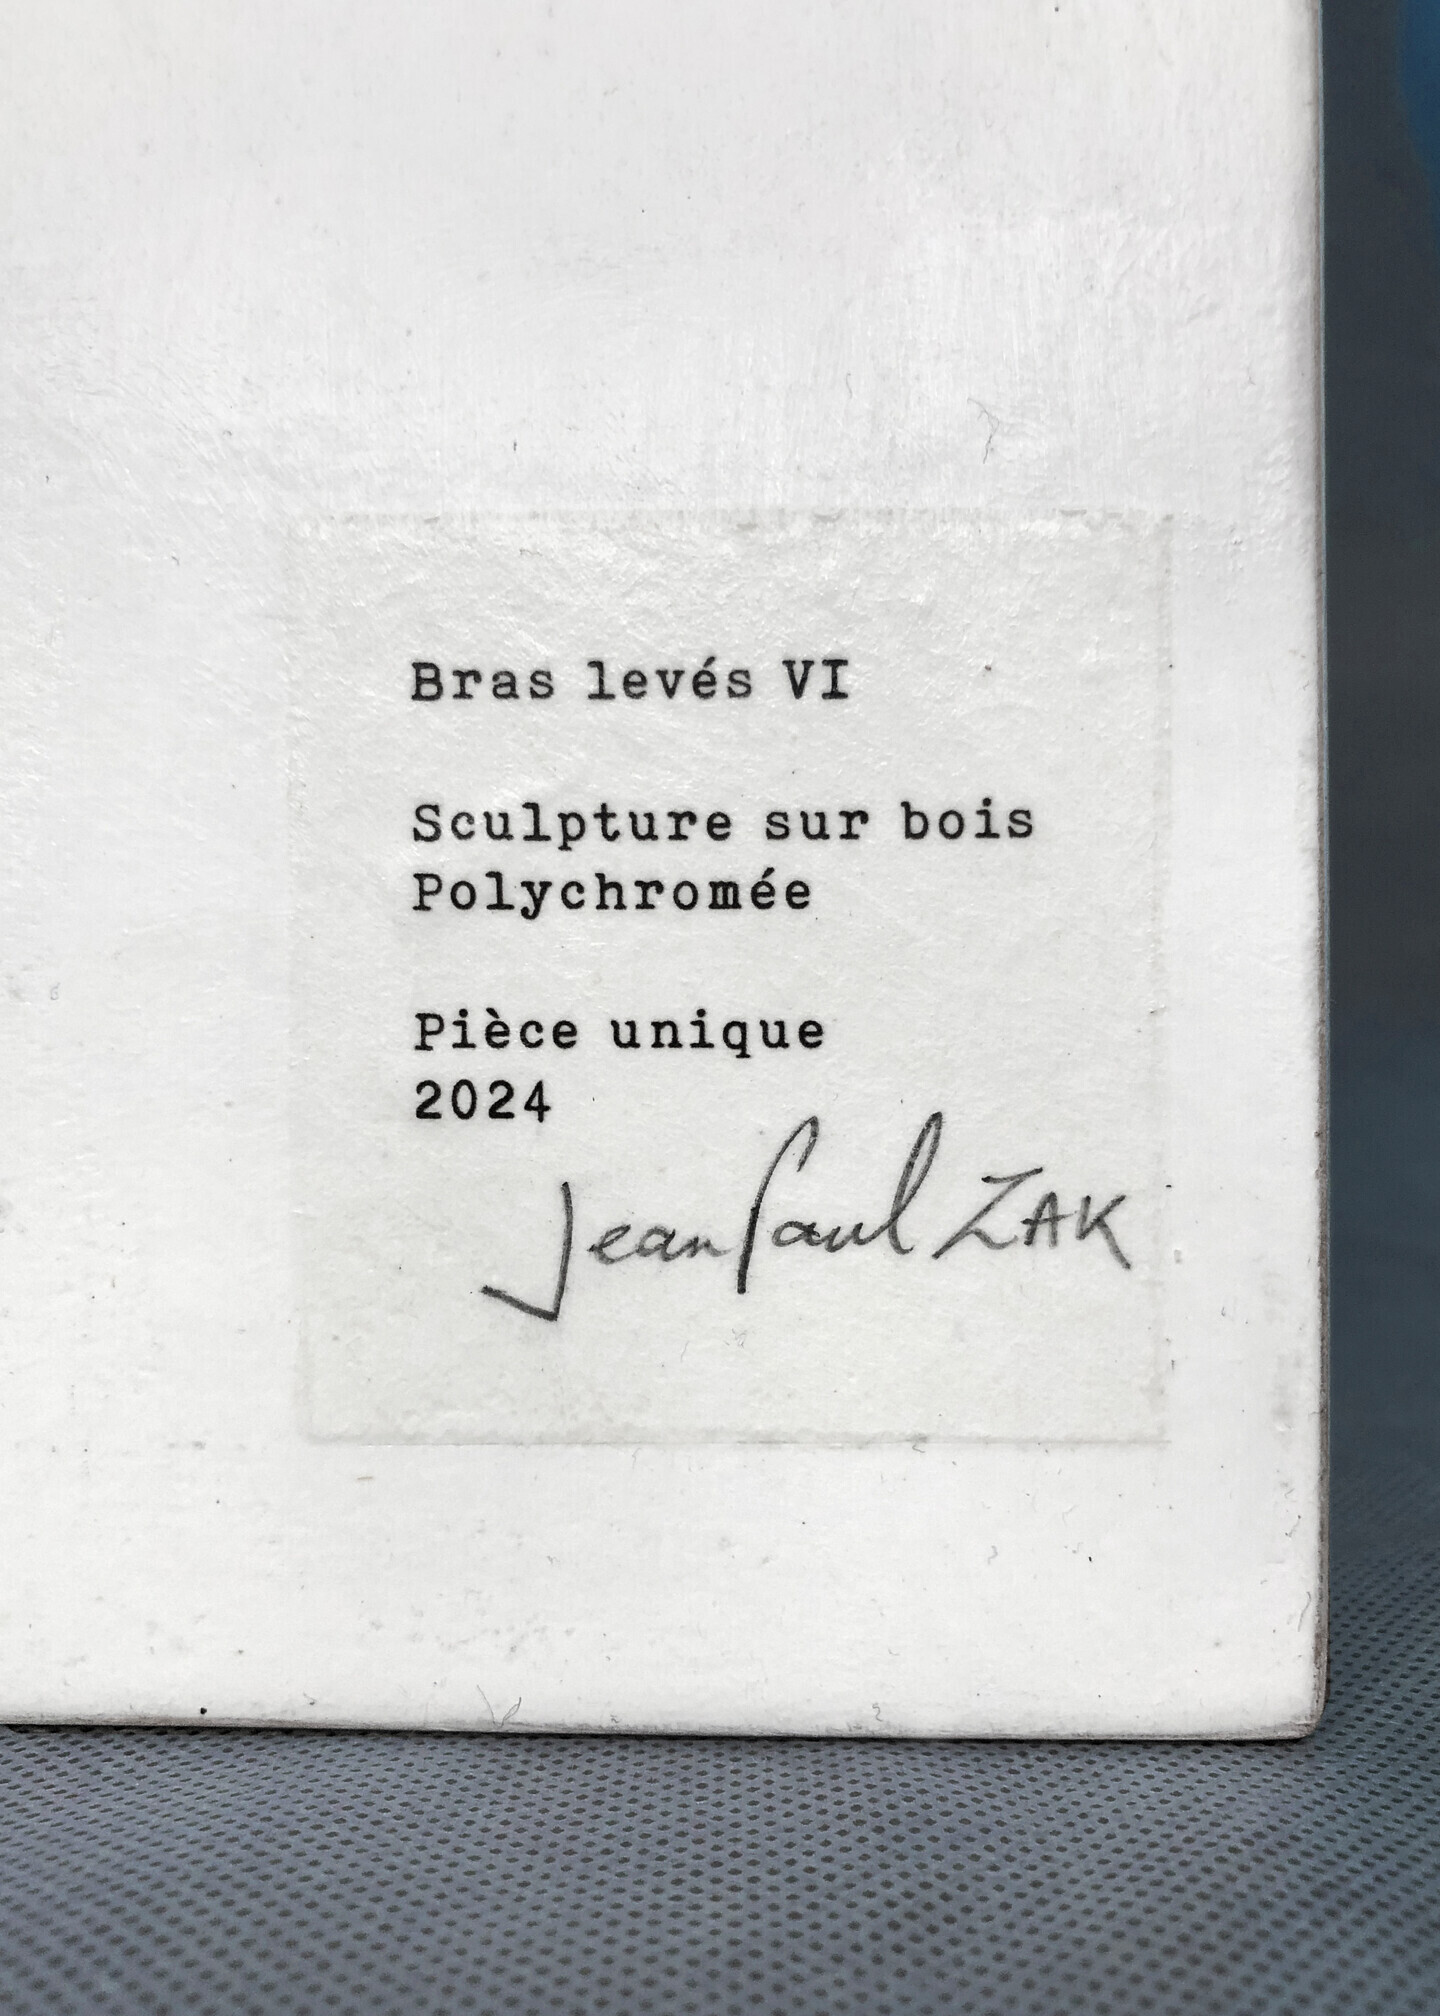 Bras levés VI
Sculpture sur bois
Polychromée
Pièce unique
2024
Jean Paul ZAK